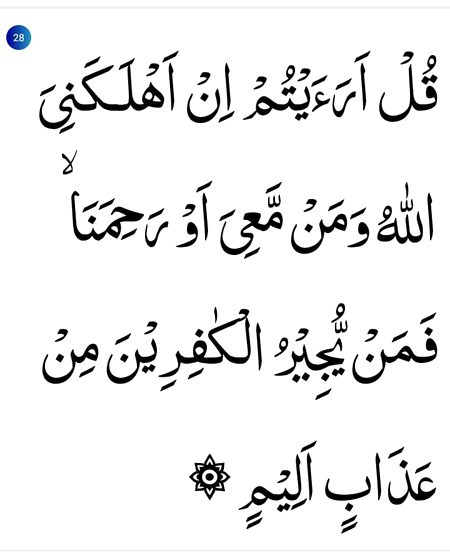 28
قُلْ اَرَءَيْتُمْ اِنْ اَهْلَكَنِىَ
اللّٰهُ وَمَنْ مَّعِىَ اَوْ رَحِمَنَا ۙ
فَمَنْ يُّجِيْرُ الْكٰفِرِيْنَ مِنْ
عَذَابٍ اَلِيْمٍ ۞